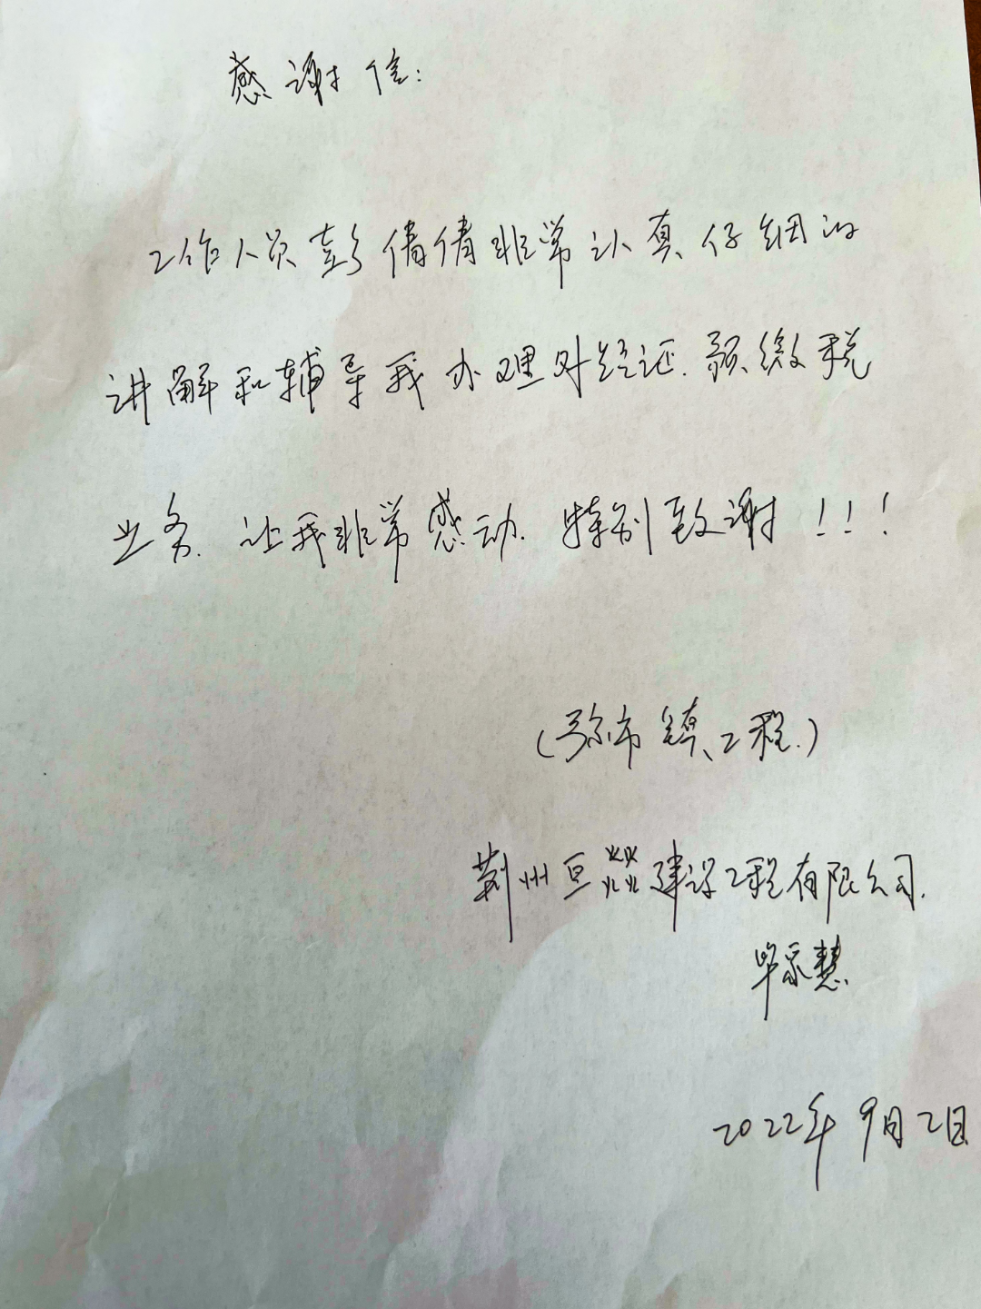 感谢信:
工作人员彭倩倩非常认真仔细的
讲解和辅导我办理外经证.预缴税
业务.让我非常感动.特别致谢!!!
(弥市镇、工程.)
荆州巨燚建设工程有限公司.
毕家慧
2022年9月2日